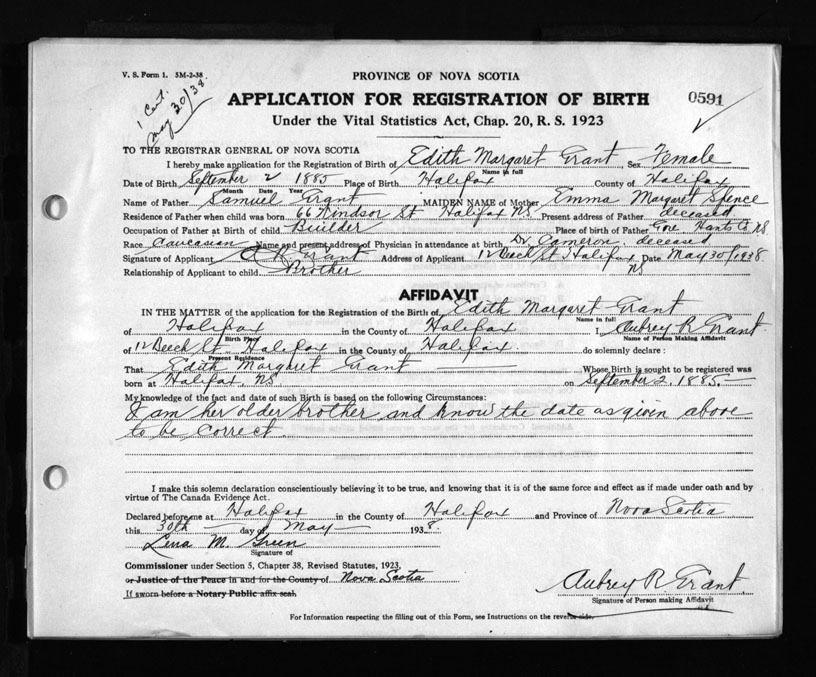 V. S. Form 1. 5M-2-38
1 Cert.
May 30/38
PROVINCE OF NOVA SCOTIA
APPLICATION FOR REGISTRATION OF BIRTH
0591
Under the Vital Statistics Act, Chap. 20, R. S. 1923
TO THE REGISTRAR GENERAL OF NOVA SCOTIA
I hereby make application for the Registration of Birth of Edith Margaret Grant Sex Female
Name in full
Date of Birth September 2 1885 Place of Birth Halifax County of Halifax
Month Date Year
Name of Father Samuel Grant MAIDEN NAME of Mother Emma Margaret Spence
Residence of Father when child was born 66 Windsor St Halifax NS Present address of Father deceased
Occupation of Father at Birth of child Builder Place of birth of Father Gore Hants Co NS
Race Caucasian Name and present address of Physician in attendance at birth Dr Cameron. deceased
Signature of Applicant A R. Grant Address of Applicant 12 Beech St Halifax NS Date May 30/1938
Relationship of Applicant to child Brother
AFFIDAVIT
IN THE MATTER of the application for the Registration of the Birth of Edith Margaret Grant
Name in full
of Halifax in the County of Halifax I, Aubrey R Grant
Birth Place Name of Person Making Affidavit
of 12 Beech St. Halifax in the County of Halifax do solemnly declare :
Present Residence
That Edith Margaret Grant Whose Birth is sought to be registered was
born at Halifax, NS on September 2, 1885.
My knowledge of the fact and date of such Birth is based on the following Circumstances:
I am her older brother and know the date as given above
to be correct.
I make this solemn declaration conscientiously believing it to be true, and knowing that it is of the same force and effect as if made under oath and by
virtue of The Canada Evidence Act.
Declared before me at Halifax in the County of Halifax and Province of Nova Scotia
this 30th day of May 1938.
Lena M. Green
Signature of
Commissioner under Section 5, Chapter 38, Revised Statutes, 1923,
or Justice of the Peace in and for the County of Nova Scotia
If sworn before a Notary Public affix seal.
Aubrey R Grant
Signature of Person making Affidavit
For Information respecting the filling out of this Form, see Instructions on the reverse side.